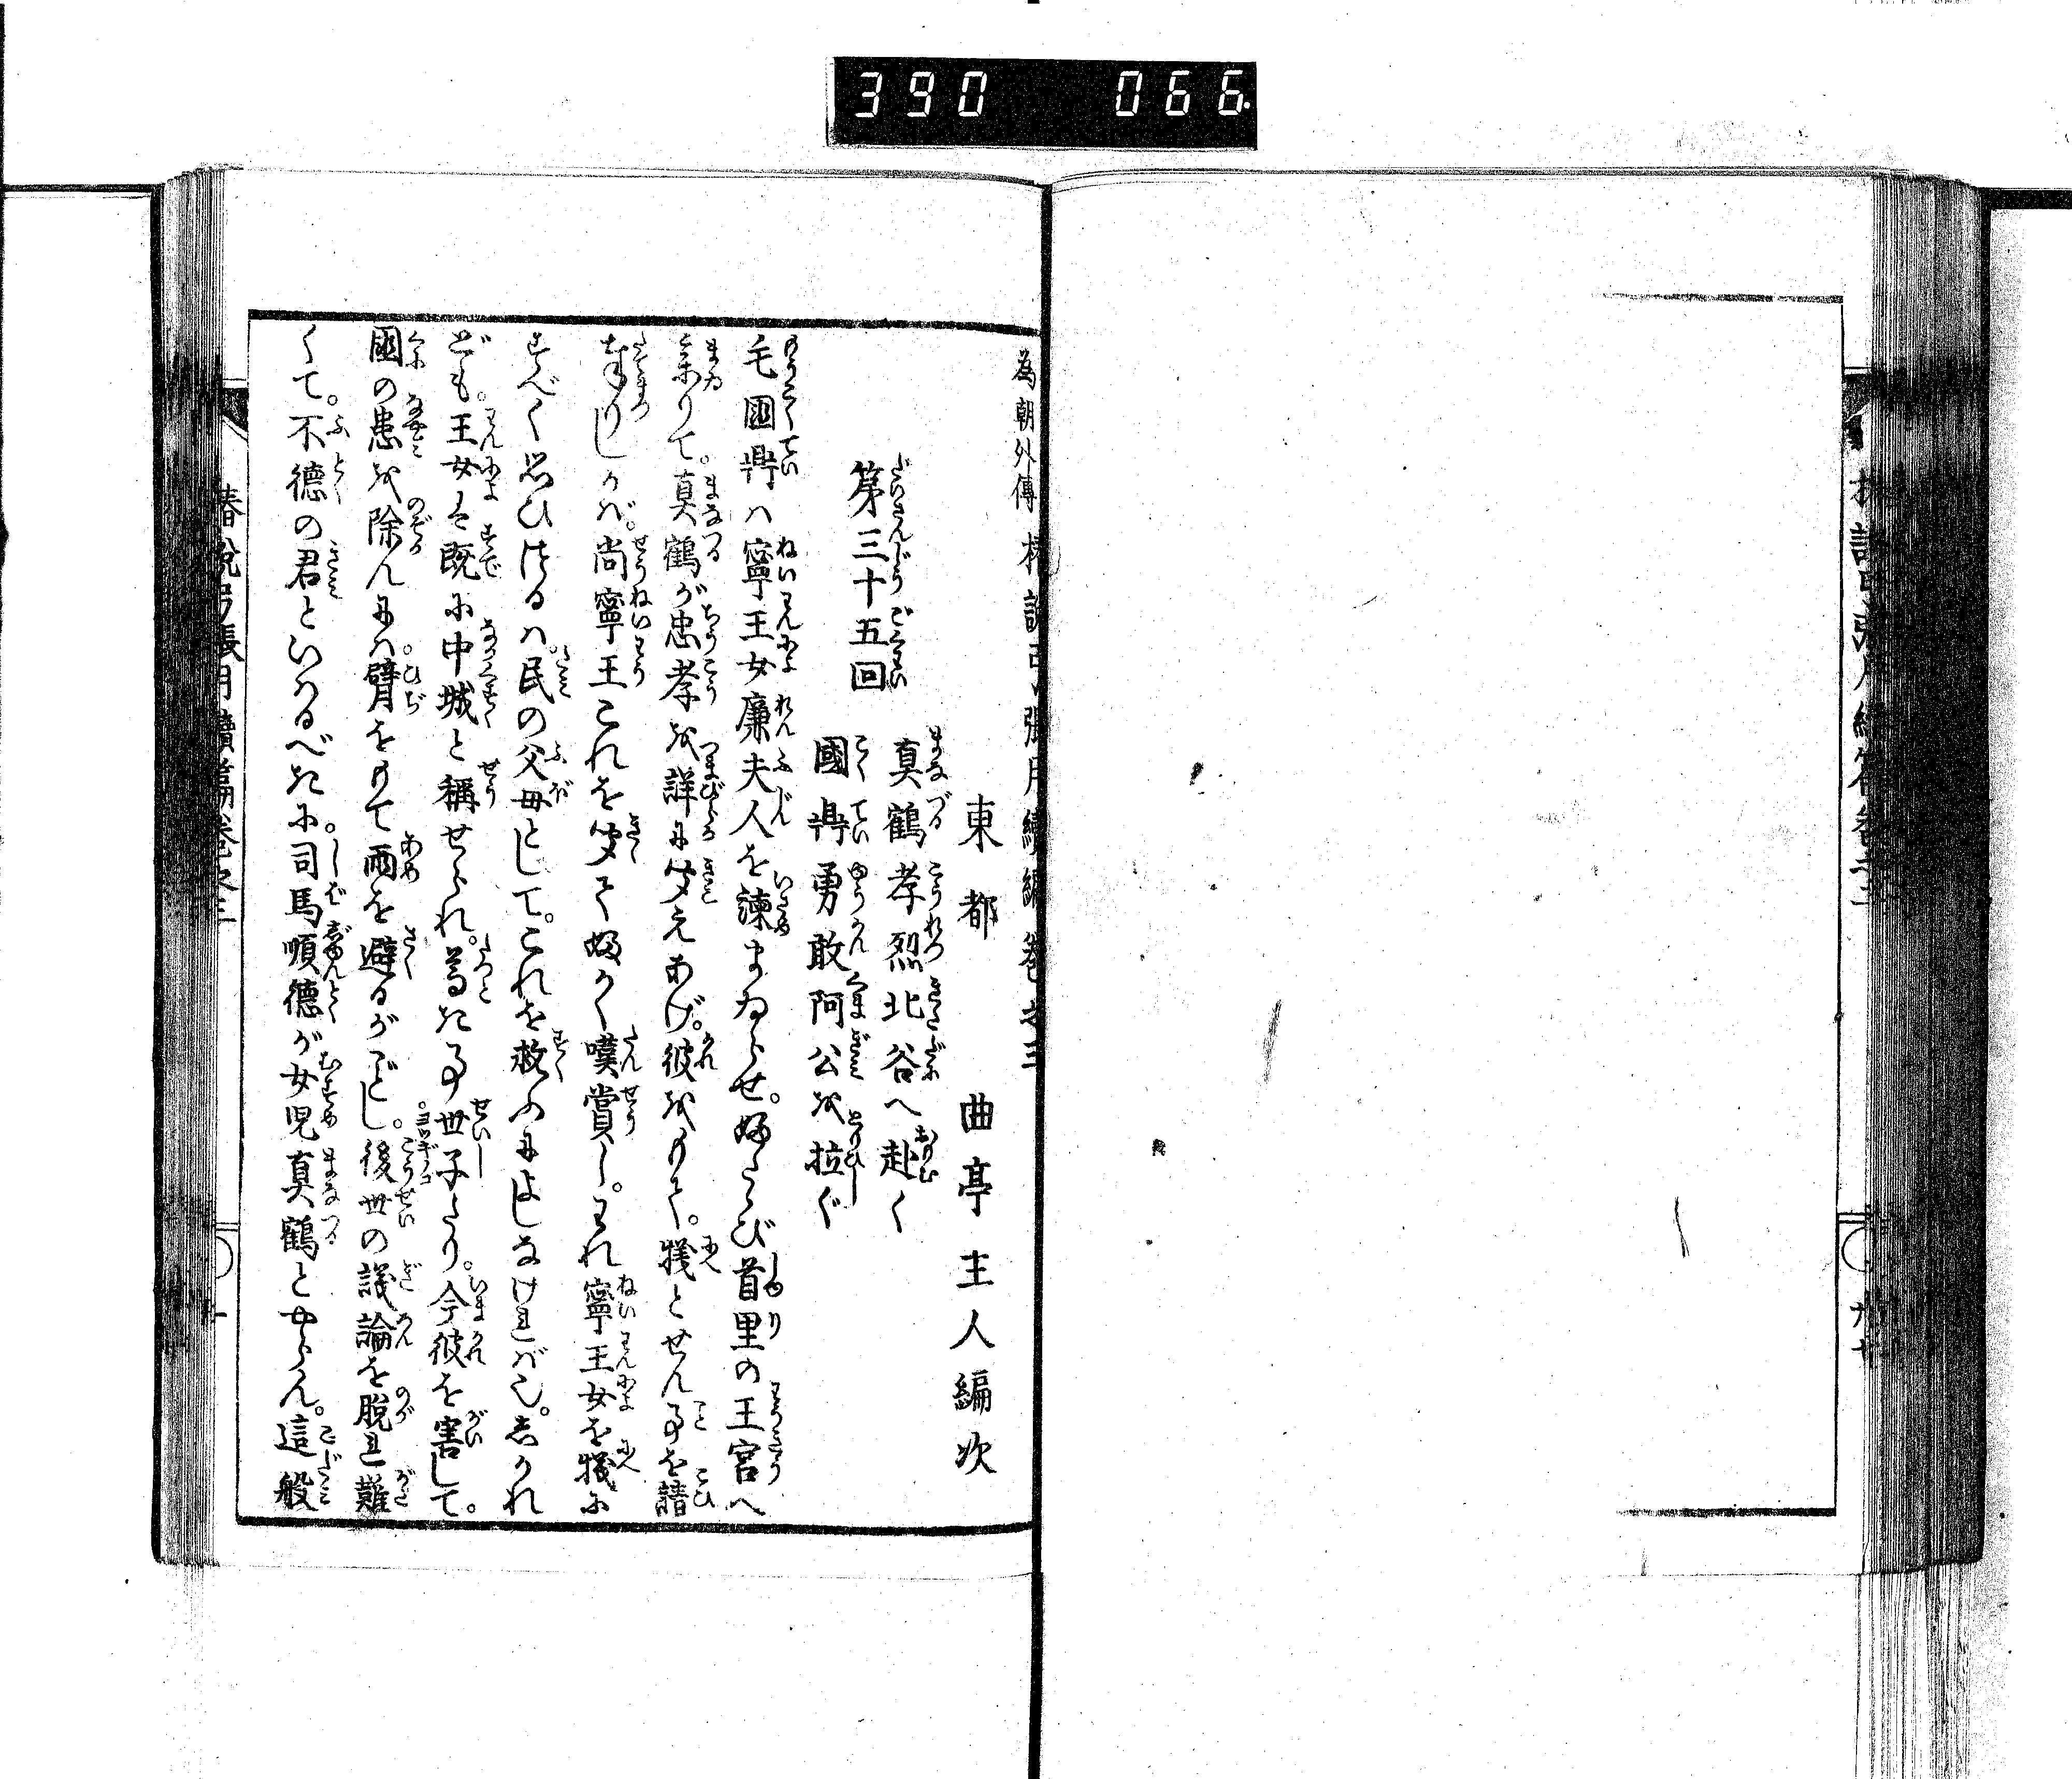 390 066
為朝外傳 椿說弓張月續編卷之三
東都 曲亭主人編次
第三十五回 真鶴孝烈北谷へ赴く
國鼎勇敢阿公を拉ぐ
毛國鼎ハ寧王女廉夫人を諫まゐらせ。ふたゝび首里の王宮へ
參りて。真鶴が忠孝を詳に聞えあげ。彼をもて。犠とせん事を請
奉りしかば。尚寧王これを聞て、ふかく嘆賞し。われ寧王女を犠に
すべく思ひ決るハ。民の父母として。これを救ふによしなければ也。しかれ
ども。王女ハ既に中城と称せられ。尊き事世子たり。今彼を害して。
國の患を除んにハ。臂をもて雨を避るがごとし。後世の議論を脱れ難
くて。不德の君といはるべきに。司馬順德が女児真鶴とやらん。這般
椿說弓張月續編卷之三